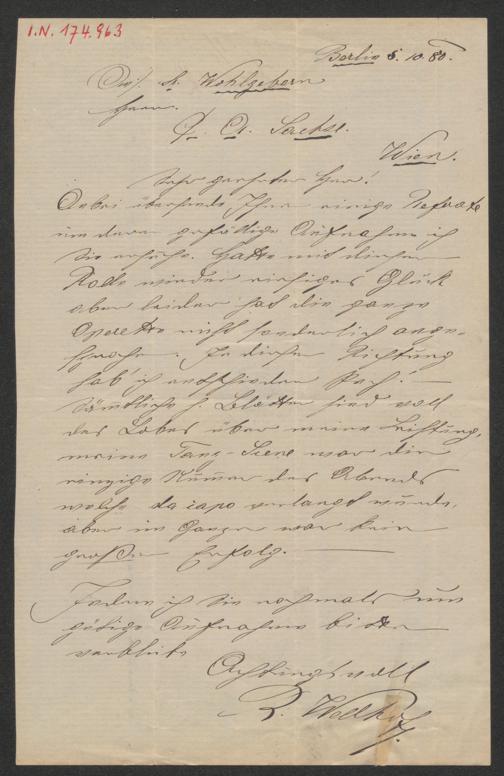 I.N. 174.963
Berlin 5. 10. 80.
Sr. Wohlgeborn
Herrn
A. Sachse.
Wien.
Sehr geehrter Herr!
Anbei übersende Ihnen einige Referate
um deren gefällige Aufnahme ich
Sie ersuche. Hatte mit dieser
Rolle wieder riesiges Glück
aber leider hat die ganze
Operette nicht sonderlich ange-
sprochen. In dieser Richtung
hab' ich entschieden Pech! —
Sämtliche Blätter sind voll
des Lobes über meine Leistung,
meine Tanz-Scene war die
einzige Nummer des Abends
welche da capo verlangt wurde,
aber im Ganzen war kein
großer Erfolg. —
Indem ich Sie nochmals um
gütige Aufnahme bitte
verbleibe
Achtungsvoll
R. Wellhof